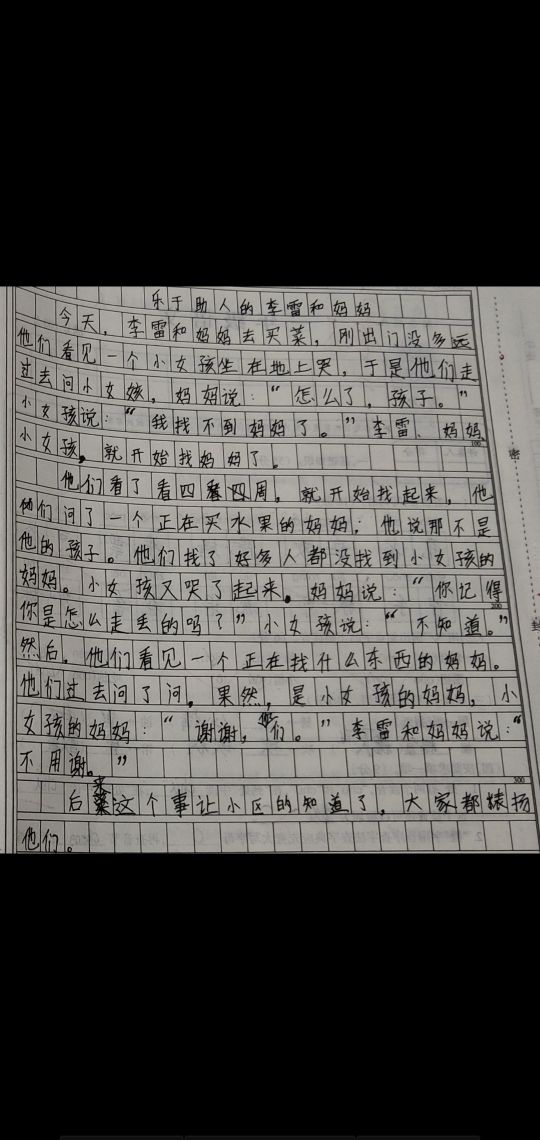 乐于助人的李雷和妈妈
今天，李雷和妈妈去买菜，刚出门没多远
他们看见一个小女孩坐在地上哭，于是他们走
过去问小女孩，妈妈说：“怎么了，孩子。”
小女孩说：“我找不到妈妈了。”李雷、妈妈、
小女孩，就开始找妈妈了。
100
他们看了看四周，就开始找起来，他
们问了一个正在买水果的妈妈；他说那不是
他的孩子。他们找了好多人都没找到小女孩的
妈妈。小女孩又哭了起来。妈妈说：“你记得
你是怎么走丢的吗？”小女孩说：“不知道。”
200
然后，他们看见一个正在找什么东西的妈妈。
他们过去问了问，果然，是小女孩的妈妈，小
女孩的妈妈：“谢谢，你们。”李雷和妈妈说：“
不用谢。”
300
后来这个事让小区的知道了，大家都表扬
他们。
密
封